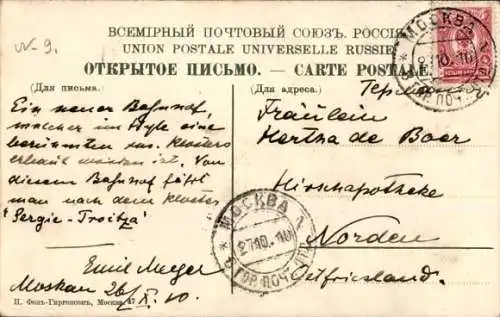 N. 9.
ВСЕМІРНЫЙ ПОЧТОВЫЙ СОЮЗЪ. РОССІЯ
UNION POSTALE UNIVERSELLE RUSSIE
ОТКРЫТОЕ ПИСЬМО. — CARTE POSTALE.
(Для письма.)
Ein neuer Bahnhof,
welcher im Style eine
berühmten russ. Klosters
erbaut worden ist. Von
diesem Bahnhof fährt
man nach dem Kloster
"Sergie-Troitza"
Emil Meyer
Moskau 26/X. 10
П. Фонъ-Гиргенсонъ, Москва.
(Для адреса.)
Fräulein
Hertha de Boer
Hirschapotheke
Norden
Ostfriesland.
МОСКВА 1
27.10.10
ГОР. ПОЧТ.
МОСКВА 1
10.10
ГОР. ПОЧТ.